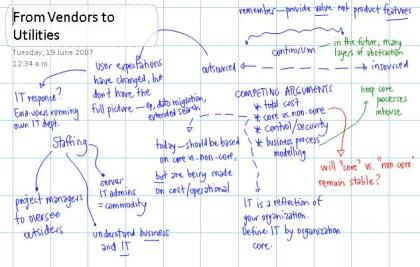 From Vendors to
Utilities
Tuesday, 19 June 2007
12:34 a.m.
remember — provide value not product features
continuum
in the future, many
layers of abstraction
outsourced
insourced
User expectations
have changed, but
don't have the
full picture — eg, data migration,
extended search
IT response?
End-users running
own IT dept.
COMPETING ARGUMENTS
* total cost
* core vs. non-core
* control/security
* business process
modelling
keep core
processes
inhouse
Staffing
today — should be based
on core v. non-core,
but are being made
on cost/operational
will "core" vs. "non-core"
remain stable?
server
IT admins
= commodity
project managers
to oversee
outsiders
understand business
and IT
IT is a reflection of
your organization.
Define IT by organization
core.